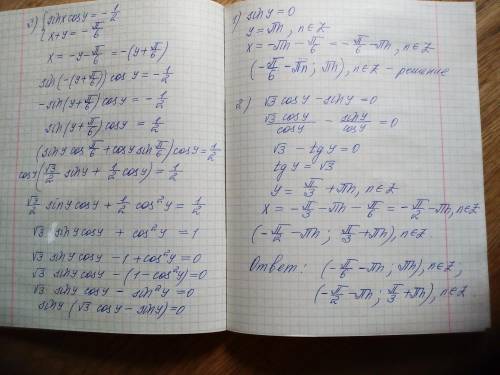 3) { sinx cosy = -1/2
x+y = -π/6
x = -y - π/6 = -(y + π/6)
sin(-(y + π/6)) cosy = -1/2
-sin(y + π/6) cosy = -1/2
sin(y + π/6) cosy = 1/2
(siny cos π/6 + cosy sin π/6) cosy = 1/2
cosy (√3/2 siny + 1/2 cosy) = 1/2
√3/2 siny cosy + 1/2 cos²y = 1/2
√3 siny cosy + cos²y = 1
√3 siny cosy - 1 + cos²y = 0
√3 siny cosy - (1 - cos²y) = 0
√3 siny cosy - sin²y = 0
siny (√3 cosy - siny) = 0
1) siny = 0
y = πn, n∈Z
x = -πn - π/6 = -π/6 - πn, n∈Z
(-π/6 - πn ; πn), n∈Z - решение
2) √3 cosy - siny = 0
√3 cosy/cosy - siny/cosy = 0
√3 - tgy = 0
tgy = √3
y = π/3 + πn, n∈Z
x = -π/3 - πn - π/6 = -π/2 - πn, n∈Z
(-π/2 - πn ; π/3 + πn), n∈Z.
Ответ: (-π/6 - πn ; πn), n∈Z,
(-π/2 - πn ; π/3 + πn), n∈Z.